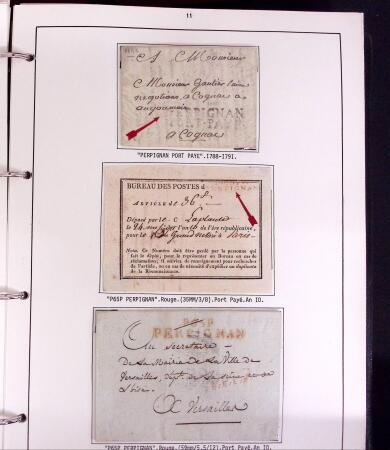 11
A Monsieur
Monsieur Gautier l'ainé
negotiant, a Cognac
PERPIGNAN
PORT-PAYE
a Cognac
"PERPIGNAN PORT PAYE".1788-1791.
BUREAU DES POSTES d
PERPIGNAN
ARTICLE de 36
Déposé par le C Laplante
le 24 de l'ère républicaine,
pour le à Paris
Nota. Ce Numéro doit être gardé par la personne qui
fait le dépôt, pour le représenter au Bureau en cas de
réclamation; il servira de renseignement pour rechercher
de l'article, ou en cas de nécessité d'expédier un duplicata
de la Reconnaissance.
"P65P PERPIGNAN".Rouge.(35MM/3/8).Port Payé.An IO.
P65P
PERPIGNAN
Au Secretaire
De la Mairie de la Ville de
Versailles, Dept. de
a Versailles
"P65P PERPIGNAN".Rouge.(59mm/5.5/12).Port Payé.An IO.